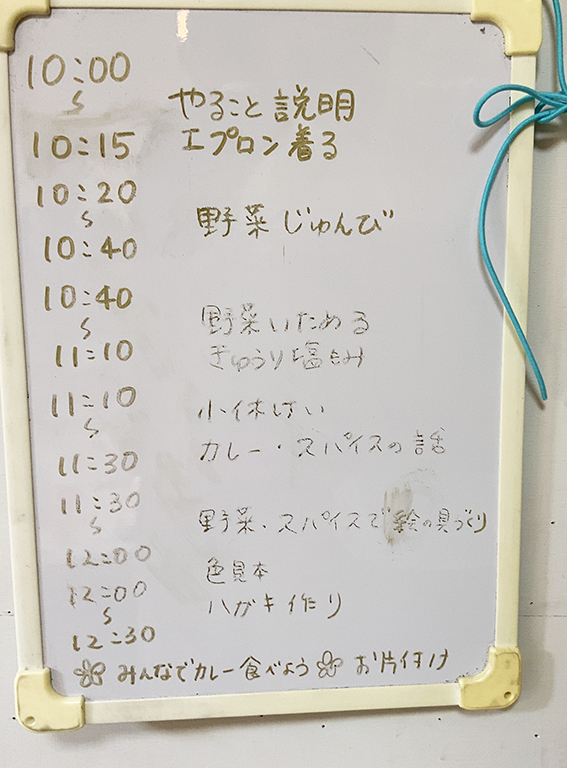 10:00
〜
やること説明
10:15
エプロン着る
10:20
〜
野菜じゅんび
10:40
10:40
〜
野菜いためる
11:10
きゅうり塩もみ
11:10
〜
小休けい
11:30
カレー・スパイスの話
11:30
〜
野菜・スパイスで絵の具づくり
12:00
色見本
12:00
〜
ハガキ作り
12:30
みんなでカレー食べよう お片付け